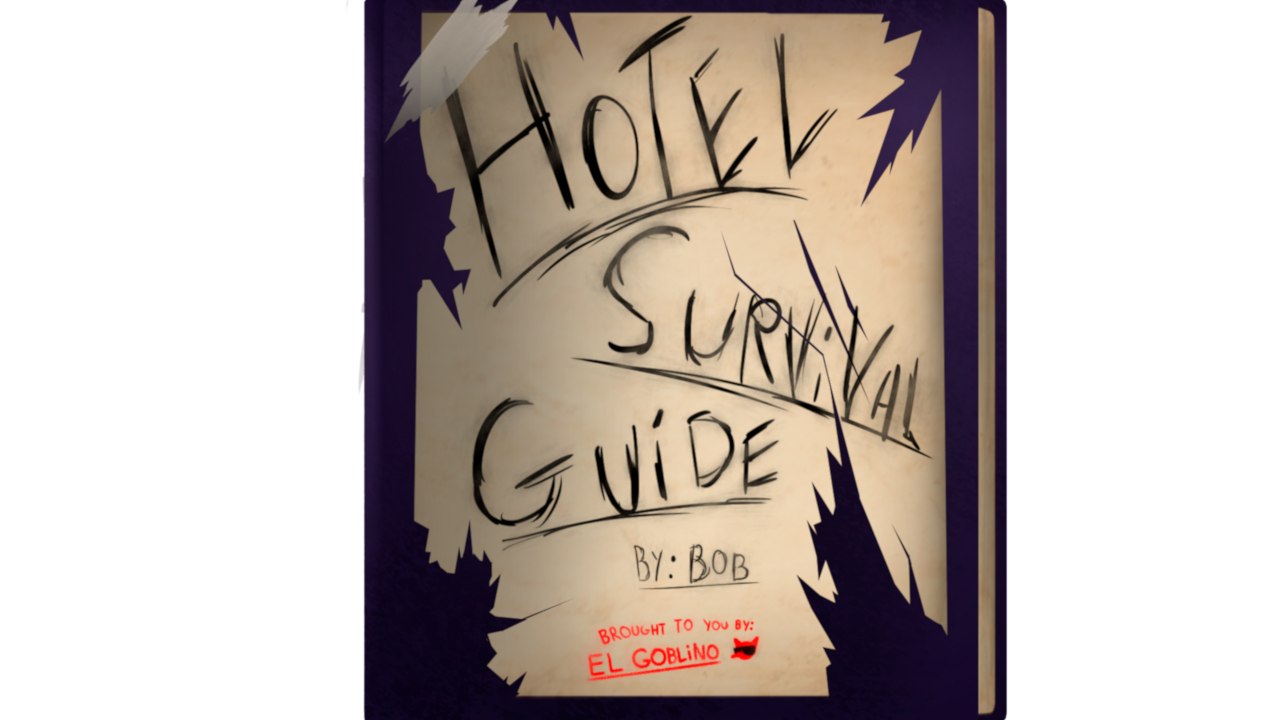 HOTEL
SURViVAL
GUiDE
BY: BOB
BROUGHT TO YOU BY:
EL GOBLiNO